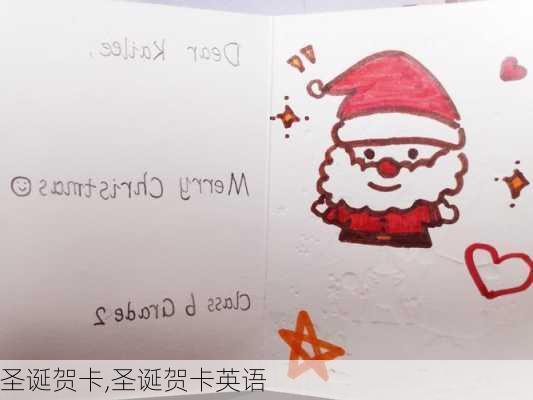 Dear Kailee,
Merry Christmas☺
Class 6 Grade 2
圣诞贺卡,圣诞贺卡英语